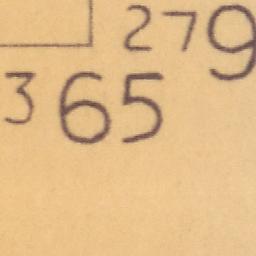 279
365